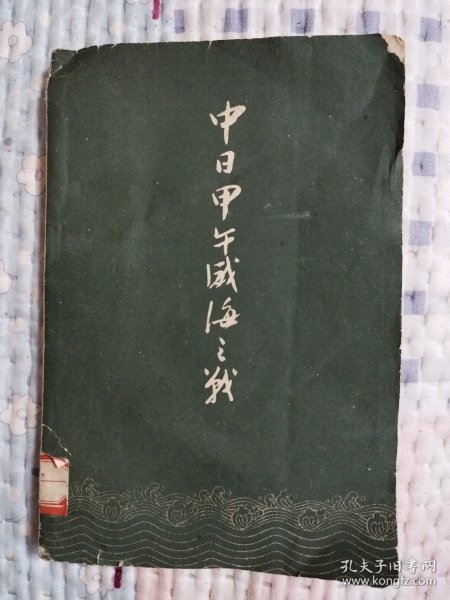 中日甲午威海之战
孔夫子旧书网
www.kongfz.com